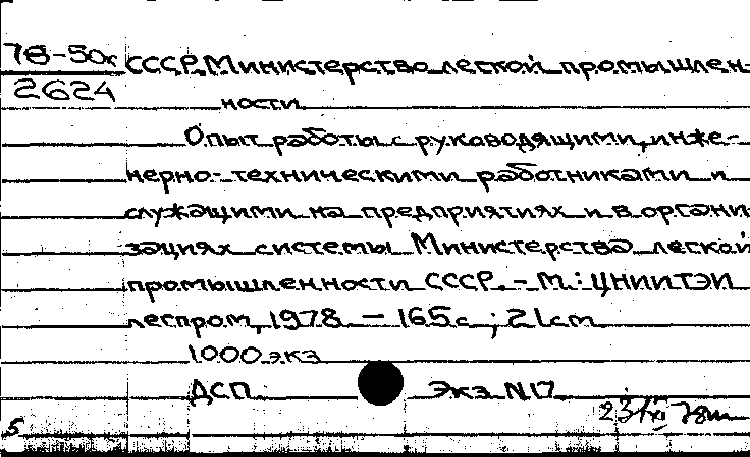 78-50к
2624
СССР. Министерство легкой промышлен-
ности.
Опыт работы с руководящими, инже-
нерно-техническими работниками и
служащими на предприятиях и в органи
зациях системы Министерства легкой
промышленности СССР. - М.: ЦНИИТЭИ
легпром, 1978. — 165с.; 21см.
1000 экз
ДСП. Экз. N17
23/XI 78
5